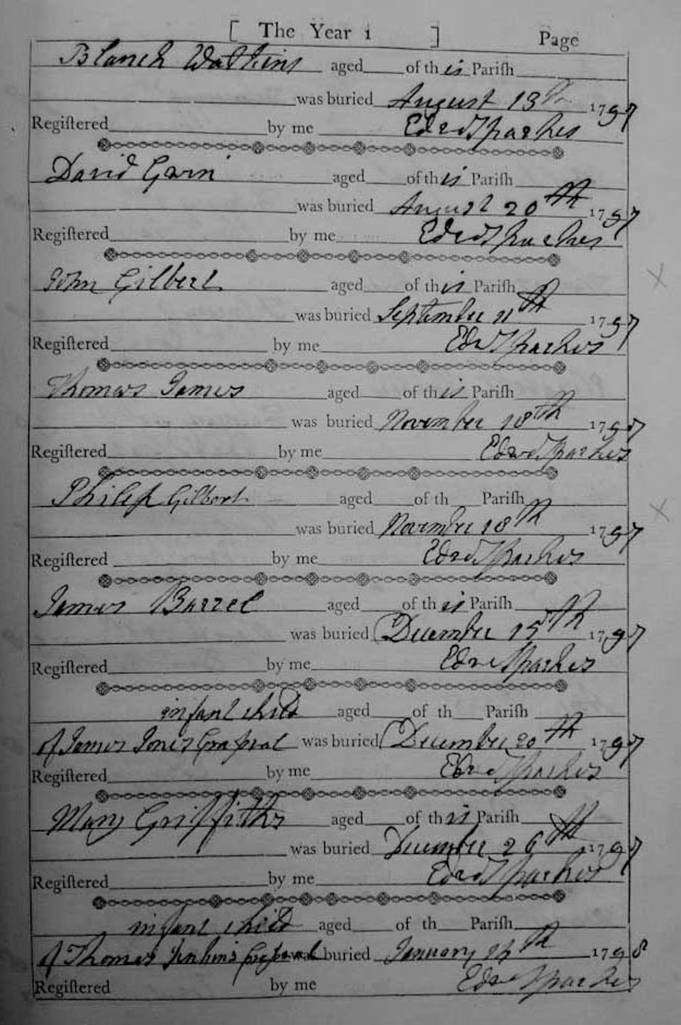 [ The Year 1 ] Page
Blanch Watkins aged of this Pariſh
was buried August 13th 1797
Regiſtered by me Edwd Sparkes
David Gwin aged of this Pariſh
was buried August 20th 1797
Regiſtered by me Edwd Sparkes
John Gilbert aged of this Pariſh
was buried September 11th 1797
Regiſtered by me Edwd Sparkes
Thomas James aged of this Pariſh
was buried November 18th 1797
Regiſtered by me Edwd Sparkes
Philip Gilbert aged of th Pariſh
was buried November 18th 1797
Regiſtered by me Edwd Sparkes
James Barrel aged of this Pariſh
was buried December 15th 1797
Regiſtered by me Edwd Sparkes
infant child aged of th Pariſh
of James Jones was buried December 20th 1797
Regiſtered by me Edwd Sparkes
Mary Griffiths aged of this Pariſh
was buried December 26th 1797
Regiſtered by me Edwd Sparkes
infant child aged of th Pariſh
of Thomas Jenkins was buried January th 1798
Regiſtered by me Edwd Sparkes